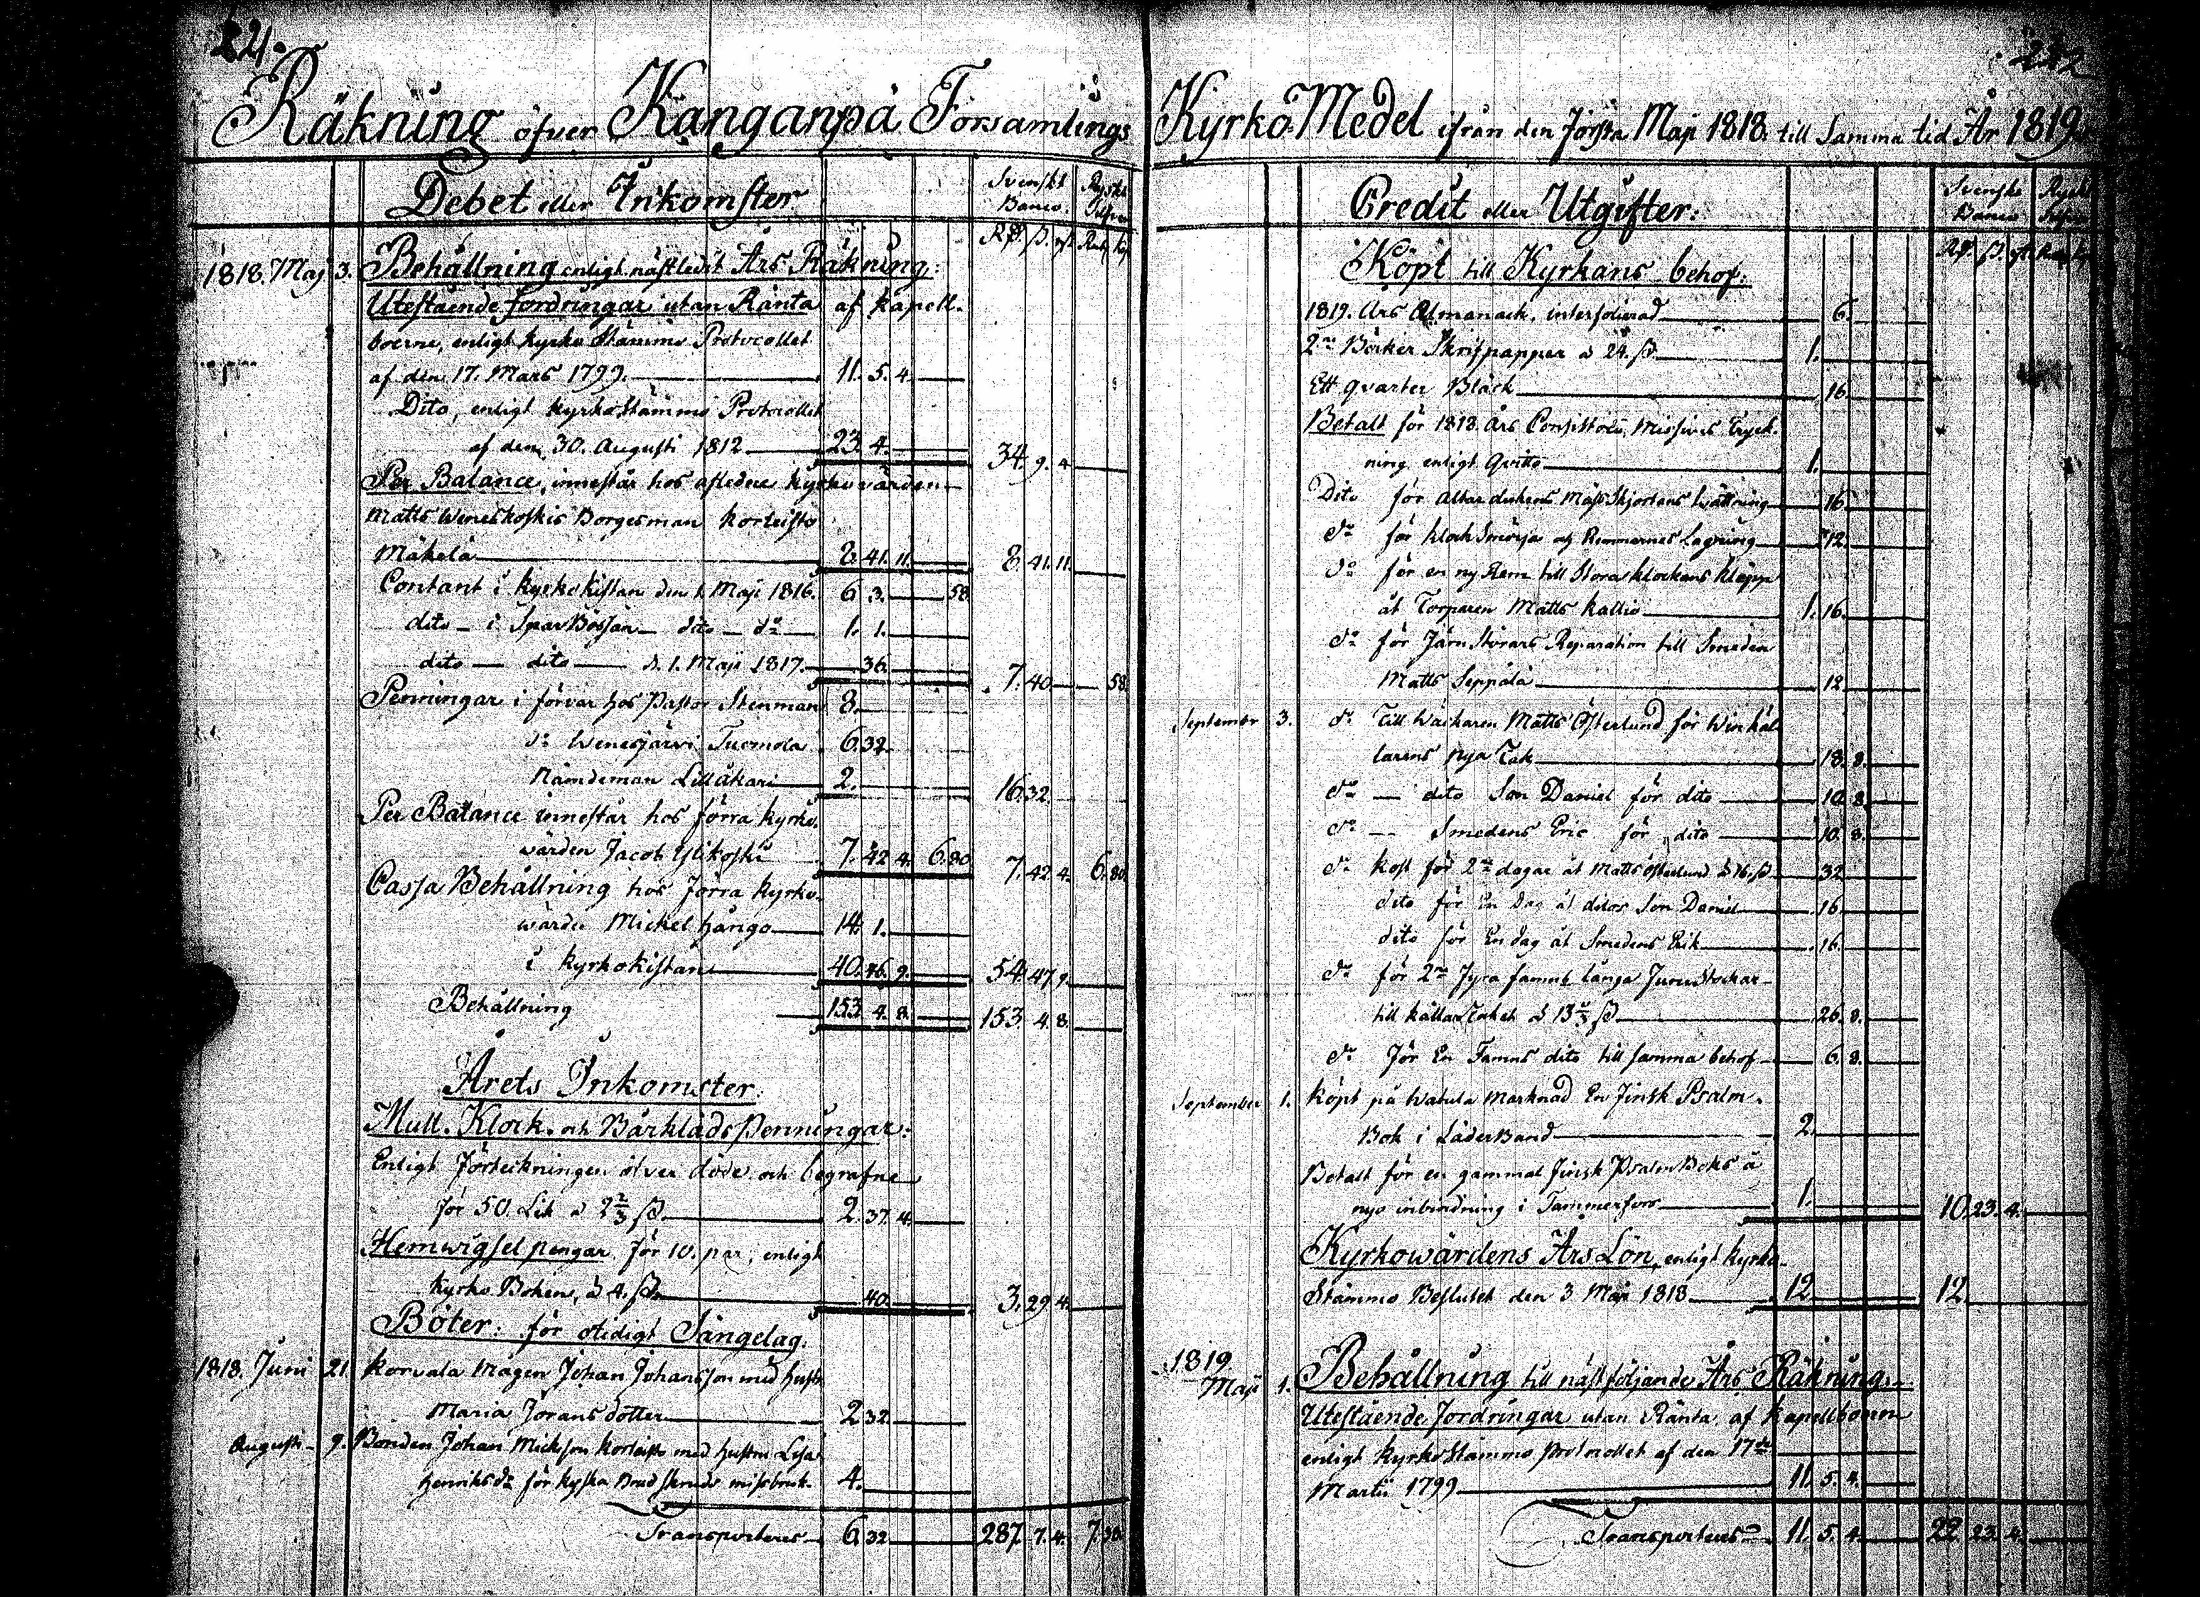 221.
Räkning öfver Kanganpä Församlings
Debet eller Inkomster
Svenskt Banco. Ryskt Silfver
Rd. ß. rst. Rub. kop
1818. Maj 3. Behållning enligt nästledit Års Räkning:
Utestående fordringar utan Ränta af Kapell-
boerne, enligt Kyrko Stämmo Protocollet
af den 17. Mars 1799. 11. 5. 4.
Dito, enligt Kyrko Stämmo Protocollet
af den 30. Augusti 1812 23. 4. 34. 9. 4.
Per Balance, innestår hos afledne kyrkovärden
Matts Weneskoskis Borgesman Korteisto
Mäkelä 8. 41. 11. 8. 41. 11.
Contant i kyrkokistan den 1. Maji 1816. 6 3. 58
dito - i SparBössan - dito - do 1. 1.
dito - dito - d. 1. Maji 1817. 36. 7. 40 58.
Penningar i förvar hos Pastor Stenman 8.
do Wenesjärvi Tuomola 6 32.
Nämdeman Lilläkari 2. 16. 32.
Per Balance innestår hos förra kyrko-
wärden Jacob Ylikoski 7. 42 4. 6. 80 7. 42. 4. 6. 80.
Cassa Behållning hos förra kyrko-
wärde Mickel Hångo 14. 1.
i Kyrkokistan 40. 46. 9. 54. 47. 9.
Behållning 153. 4. 8. 153. 4. 8.
Årets Inkomster.
Mull-Klock- och Bårklädspenningar:
Enligt förteckningen öfver döde och begrafne
för 50. Lik à 2 2/3 ß. 2. 37. 4.
Hemwigsel pengar för 10. par, enligt
Kyrko Boken, à 4. ß. 40. 3. 29. 4.
Böter: för otidigt Sängelag.
1818. Juni 21. Korvala Mågen Johan Johansson med hustr
Maria Jöransdotter 2 32.
Augusti 9. Bonden Johan Mickson Korteisto med hustru Lisa
Henriksdr för kyska Brud skruds missbruk. 4.
Transporteres 6. 32 287. 7. 4. 7. 38.
222
KyrkoMedel ifrån den första Maji 1818. till samma tid År 1819.
Credit eller Utgifter:
Svenskt Banco Ryskt Silfver
Rd. ß. rst. Rub. kop
Köpt till Kyrkans behof:
1819. Års Almanach, interfolierad 6.
2ne Böcker Skrifpapper à 24. ß 1.
Ett qvarter Bläck 16.
Betalt för 1818. Års Consistorii Missives Tryck-
ning enligt Qvitto 1.
Dito för Altardukens Mässkjortans twättning 16.
do för klock Smörja och Remmarnes Lagning 12.
do för en ny Rem till Stora klockans kläpp
åt Torparen Matts Kallio 1. 16.
do för Järn Störars Reparation till Smeden
Matts Seppälä 12
September 3. do Till Wäckaren Matts Österlund för Winkäl-
larens nya Tak 18. 8.
do - dito Son Daniel för dito 10. 8.
do - Smedens Eric för dito 10. 8.
do kost för 2ne dagar åt Matts Österlund à 16. ß 32
dito för En dag åt ditos Son Daniel 16
dito för En dag åt Smedens Erik 16.
do för 2ne fyra famns långa Furu Stockar
till källar Taket à 13 1/3 ß 26. 8.
do för En Famns dito till samma behof 6. 8.
September 1. Köpt på Watula Marknad En finsk Psalm-
Bok i Läder Band 2.
Betalt för en gammal finsk Psalm Boks å
nyo inbindning i Tammerfors 1. 10. 23. 4.
Kyrkowärdens Års Lön, enligt Kyrko-
Stämmo Beslutet den 3 Maji 1818 12 12.
1819
Maji 1. Behållning till nästföljande Års Räkning.
Utestående fordringar utan Ränta af Kapellboerne
enligt Kyrko Stämmo Protocollet af den 17de
Martii 1799 11. 5. 4.
Transporteres 11. 5. 4. 22. 23. 4.